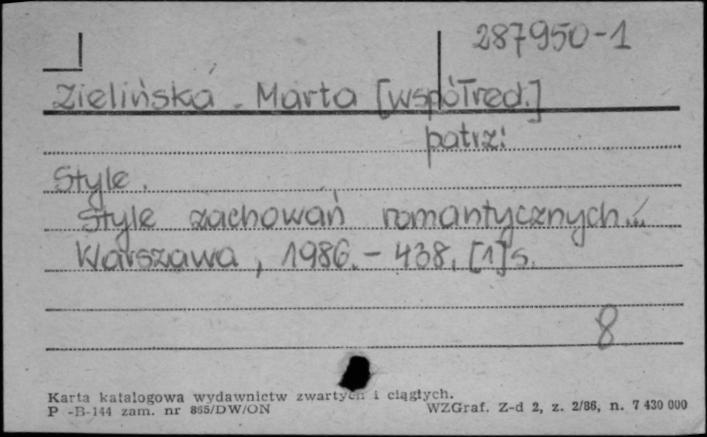 287950-1
Zielińska Marta [współred.]
patrz:
Style.
Style zachowań romantycznych...
Warszawa, 1986. - 438, [1] s.
8
Karta katalogowa wydawnictw zwartych i ciągłych.
P -B-144 zam. nr 865/DW/ON
WZGraf. Z-d 2, z. 2/86, n. 7 430 000